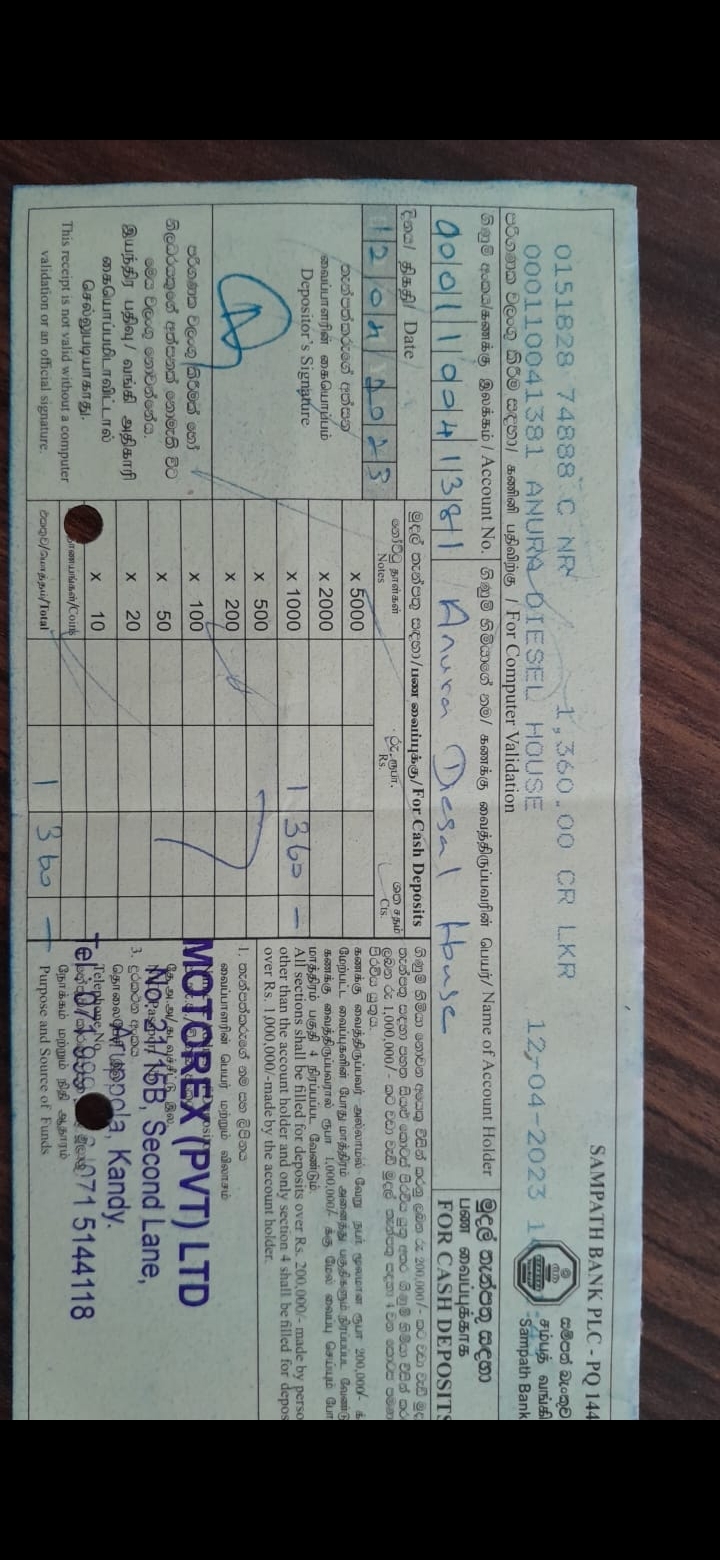 SAMPATH BANK PLC - PQ 144
0151828 74888 C NR 1,360.00 CR LKR
000110041381 ANURA DIESEL HOUSE 12-04-2023
සම්පත් බැංකුව
சம்பத் வங்கி
Sampath Bank
පරිගණක වලංගු කිරීම සඳහා / கணினி பதிவிற்கு / For Computer Validation
ගිණුම් අංකය/கணக்கு இலக்கம் / Account No.
ගිණුම් හිමියාගේ නම/ கணக்கு வைத்திருப்பவரின் பெயர்/ Name of Account Holder
මුදල් තැන්පතු සඳහා
பண வைப்புக்காக
FOR CASH DEPOSITS
000110041381 Anura Diesal House
දිනය/ திகதி/ Date
12 04 2023
මුදල් තැන්පතු සඳහා/பண வைப்புக்கு/For Cash Deposits
நோட்டு தாள்கள்
Notes
රු. ரூபா.
Rs.
ශත சதம்
Cts.
x 5000
x 2000
x 1000 1 360 —
x 500
x 200
x 100
x 50
x 20
x 10
நாணயங்கள்/Coins
එකතුව/மொத்தம்/Total 1 360 —
තැන්පත්කරුගේ අත්සන
வைப்பாளரின் கையொப்பம்
Depositor's Signature
පරිගණක වලංගු කිරීමක් හෝ
නිලධාරියකුගේ අත්සනක් නොමැති විට
මෙය වලංගු නොවන්නේය.
இயந்திர பதிவு/ வங்கி அதிகாரி
கையொப்பமிடாவிட்டால்
செல்லுபடியாகாது.
This receipt is not valid without a computer
validation or an official signature.
கணக்கு வைத்திருப்பவர் அல்லாமல் வேறு நபர் மூலமான ரூபா 200,000/-
மேற்பட்ட வைப்புகளின் போது மாத்திரம் அனைத்து பகுதிகளும் நிரப்பப்பட வேண்டும்
கணக்கு வைத்திருப்பவரால் ரூபா 1,000,000/- க்கு மேல் வைப்பு செய்யும் போது
மாத்திரம் பகுதி 4 நிரப்பப்பட வேண்டும்
All sections shall be filled for deposits over Rs. 200,000/- made by perso
other than the account holder and only section 4 shall be filled for depos
over Rs. 1,000,000/-made by the account holder.
1. තැන්පත්කරුගේ නම සහ ලිපිනය
வைப்பாளரின் பெயர் மற்றும் விலாசம்
MOTOREX (PVT) LTD
No. 21/15B, Second Lane,
Kandy.
3. දුරකථන අංකය
Telephone No.
Tel: 071 5144118
நோக்கம் மற்றும் நிதி ஆதாரம்
Purpose and Source of Funds